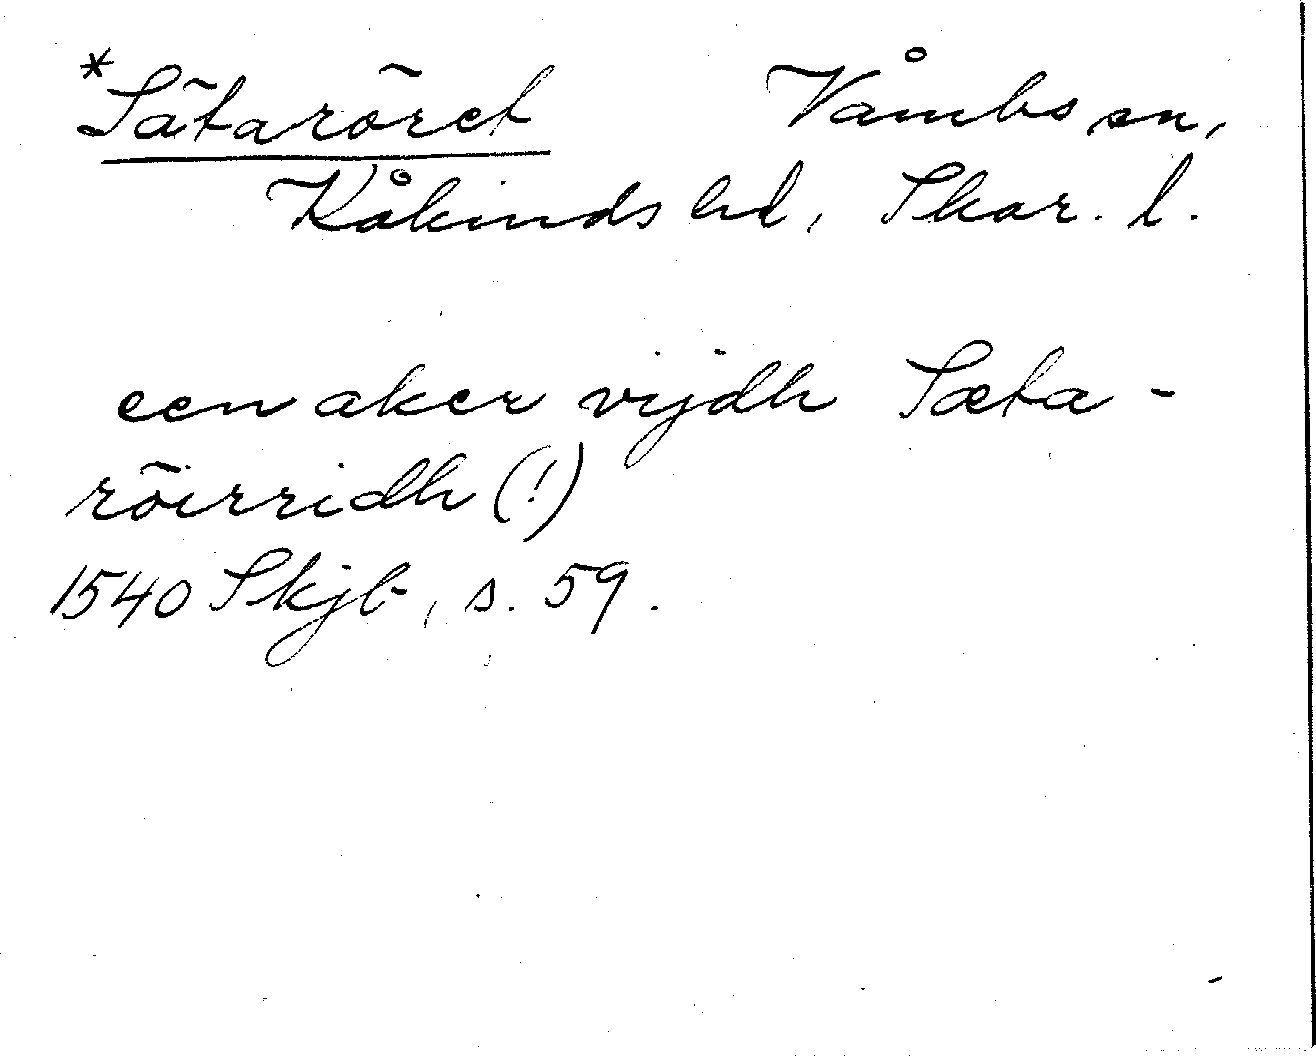 *Sätaröret Våmbs sn,
Kåkinds hd, Skar. l.
een aker vijdh Sæta-
röirridh (!)
1540 Skjb, s. 59.